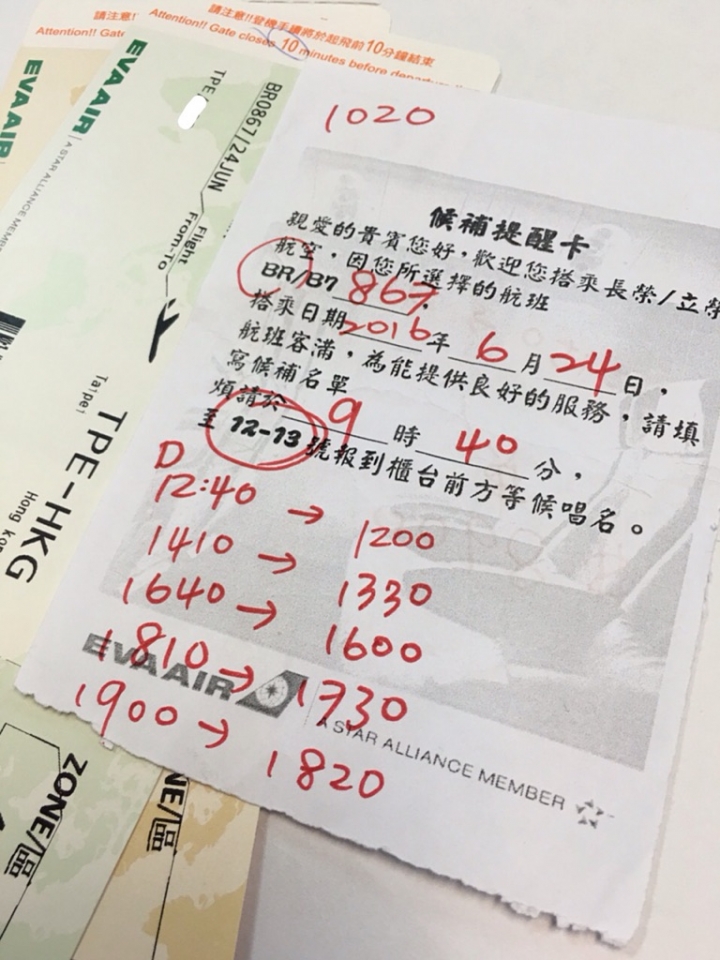 請注意!
Attention!! Gate
請注意!!登機手續將於起飛前10分鐘結束
Attention!! Gate closes 10 minutes before departure
EVA AIR
EVA AIR
A STAR ALLIANCE MEMBER
TPE
BR0867/24JUN
Flight
From-To
Taipei
Hong Kong
TPE-HKG
ZONE/區
NE/區
1020
候補提醒卡
親愛的貴賓您好,歡迎您搭乘長榮/立榮
航空,因您所選擇的航班
BR/B7 867,
搭乘日期2016年6月24日,
航班客滿,為能提供良好的服務,請填
寫候補名單
煩請於 9 時 40 分,
至 12-13 號報到櫃台前方等候唱名。
D
12:40 → 1200
1410 → 1330
1640 → 1600
1810 → 1730
1900 → 1820
EVA AIR
A STAR ALLIANCE MEMBER